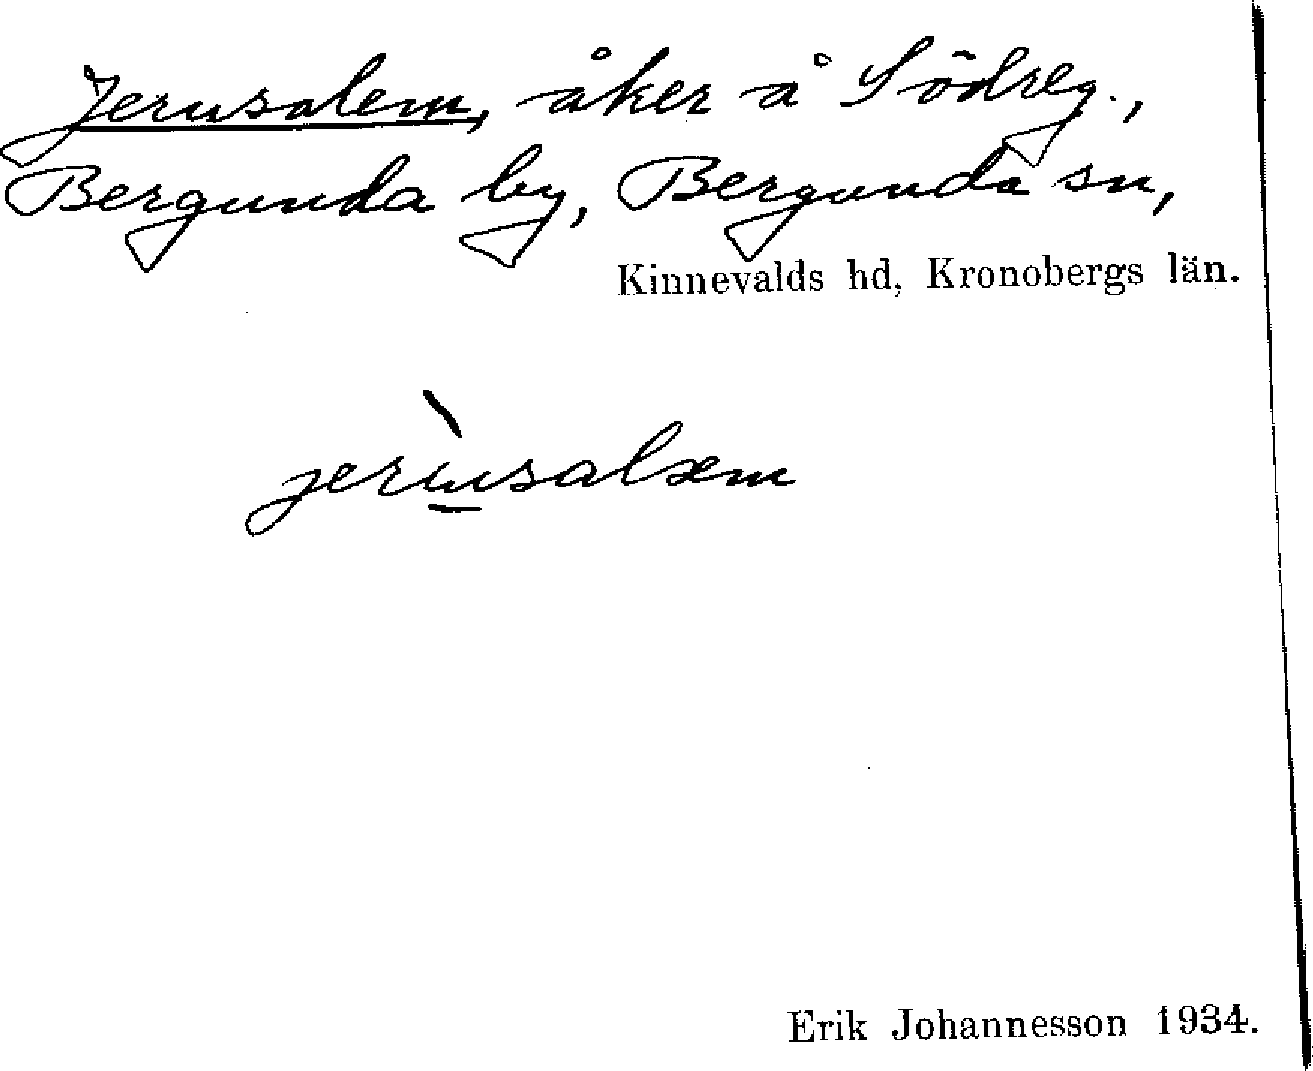 Jerusalem, åker å Södreg.,
Bergunda by, Bergunda sn,
Kinnevalds hd, Kronobergs län.
jerùsalæm
Erik Johannesson 1934.